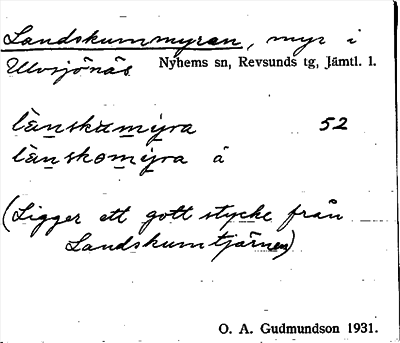 Landskummyran, myr i
Ulvsjönäs Nyhems sn, Revsunds tg, Jämtl. l.
länskumyra 52
länskomyra å
(Ligger ett gott stycke från
Landskumtjärnen)
O. A. Gudmundson 1931.